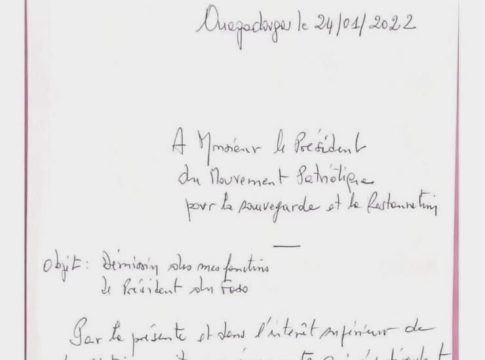 Ouagadougou le 24/01/2022
A Monsieur le Président
du Mouvement Patriotique
pour la sauvegarde et la Restauration
Objet : Démission de mes fonctions
de Président du Faso
Par la présente et dans l'intérêt supérieur de